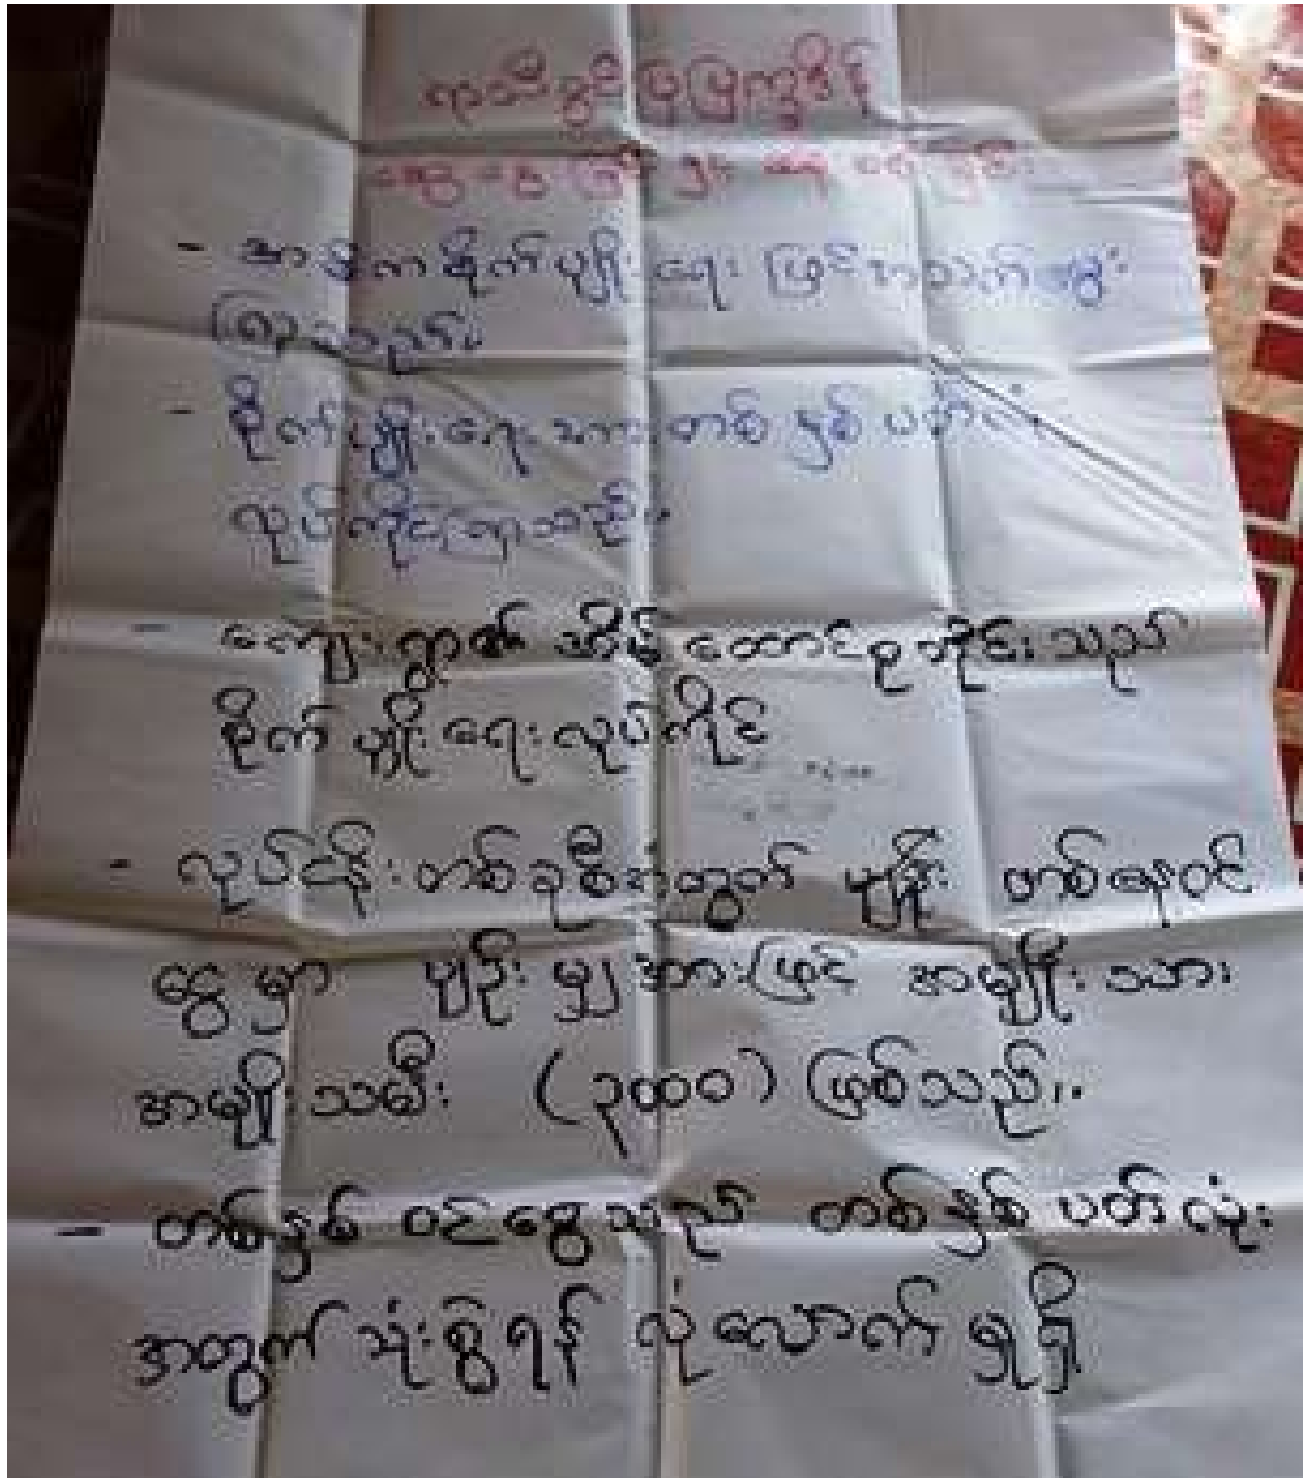 ရာသီခွင်ပြပြက္ခဒိန်
ဆွေးနွေးခြင်း နှင့် ဆန်းစစ်ခြင်း
- အဓိကစိုက်ပျိုးရေး ဖြင့်အသက်မွေး
ကြသည်။
- စိုက်ပျိုးရေးအားတစ်နှစ်ပတ်လုံး
လုပ်ကိုင်ကြသည်။
- ကျေးရွာ၏ အိမ်ထောင်စုတိုင်းသည်
စိုက်ပျိုးရေးလုပ်ကိုင်
- လုပ်ငန်းတစ်ခုစီအတွက် ပျှမ်း တစ်နေ့ဝင်
ငွေမှာ ပျဉ်းမျှအားဖြင့် အမျိုးသား
အမျိုးသမီး (၃၅၀၀) ဖြစ်သည်။
- တစ်နှစ်ဝင်ငွေသည် တစ်နှစ်ပတ်လုံး
အတွက်သုံးစွဲရန် လုံလောက်မှုရှိ